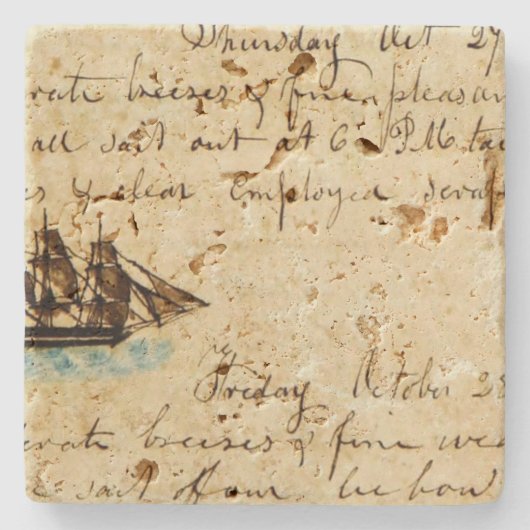 Thursday Oct 27
rate breeses & fine pleasan
all sail out at 6 PM ta
es & clear Employed scra
Freday October 28
erate breeses & fine wea
e sail off our lee bow